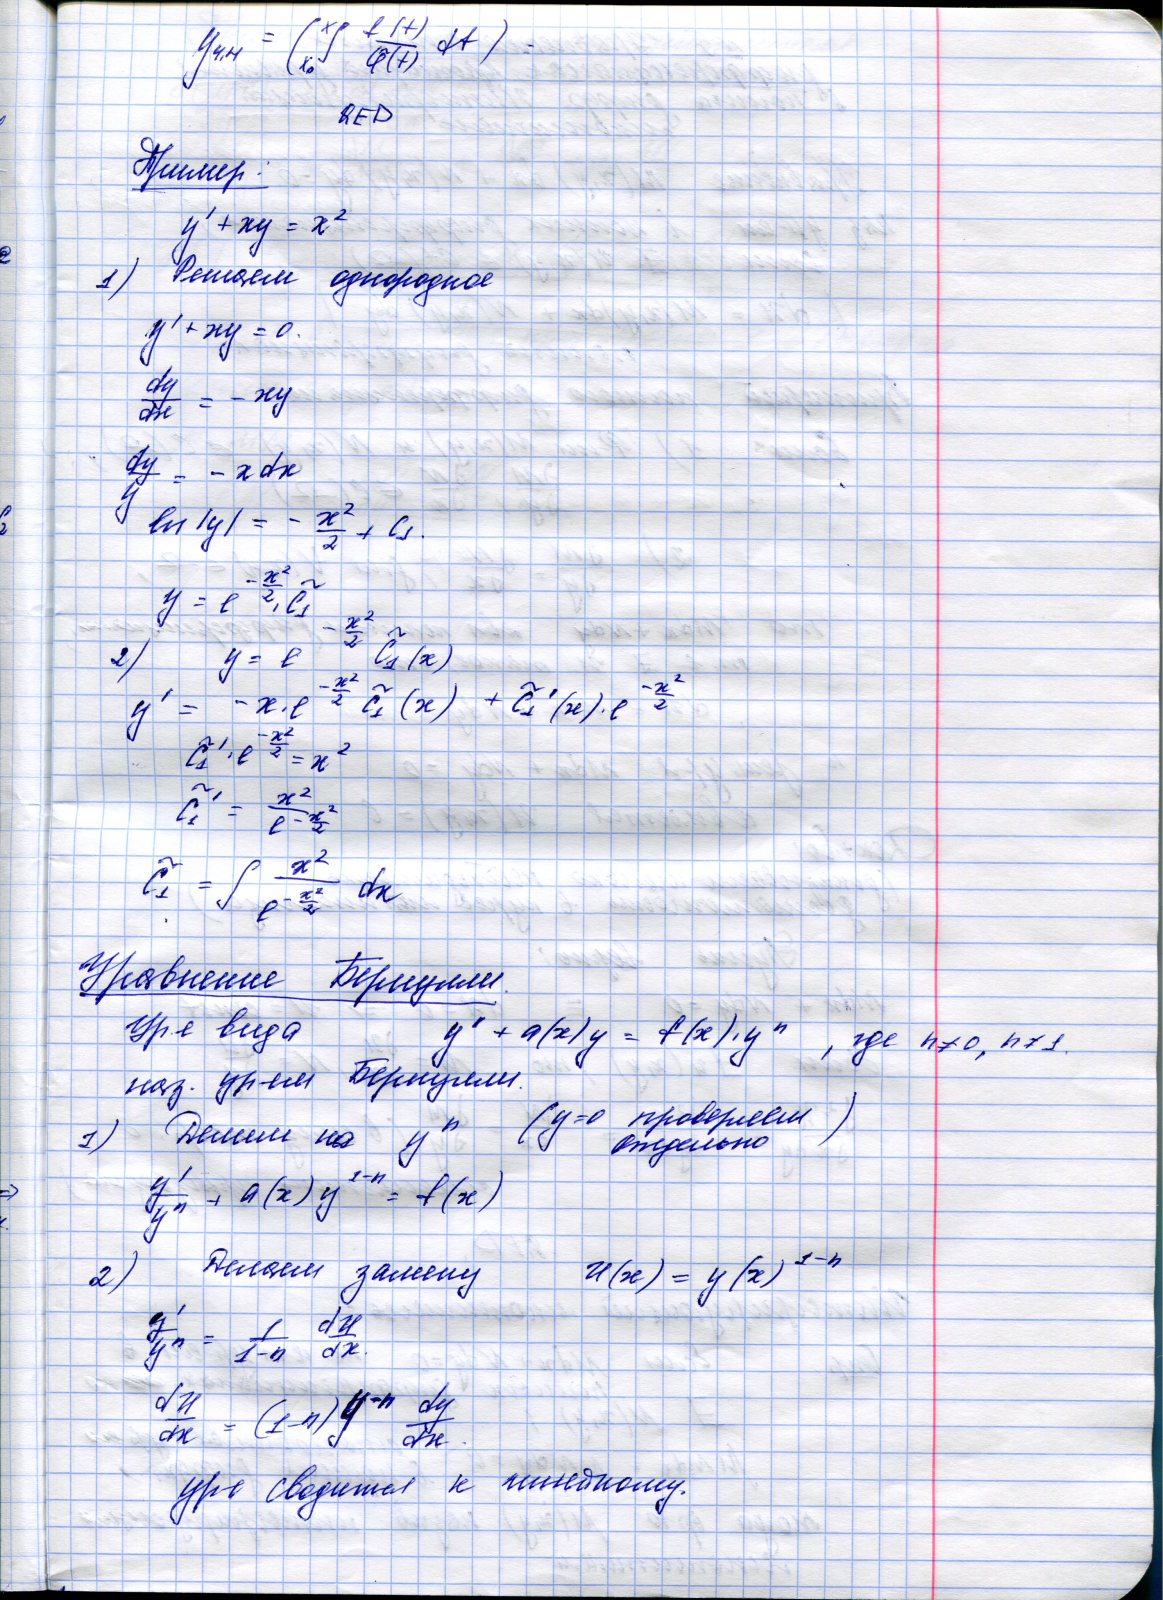 y ч.н = ( ∫ₓ₀ˣ f(t)/φ(t) dt ) ·
QED
Пример:
y' + xy = x²
1) Решаем однородное
y' + xy = 0.
dy/dx = - xy
dy/y = - x dx
ln |y| = - x²/2 + C₁.
y = e^(-x²/2) · C̃₁
2) y = e^(-x²/2) C̃₁(x)
y' = -x · e^(-x²/2) C̃₁(x) + C̃₁'(x) · e^(-x²/2)
C̃₁' · e^(-x²/2) = x²
C̃₁' = x² / e^(-x²/2)
C̃₁ = ∫ x² / e^(-x²/2) dx
Уравнение Бернулли.
Ур-е вида y' + a(x)y = f(x) · yⁿ , где n≠0, n≠1.
наз. ур-ем Бернулли.
1) Делим на yⁿ (y=0 проверяем отдельно)
y'/yⁿ + a(x) y^(1-n) = f(x)
2) Делаем замену u(x) = y(x)^(1-n)
y'/yⁿ = 1/(1-n) du/dx.
du/dx = (1-n) y^(-n) dy/dx.
ур-е сводится к линейному.